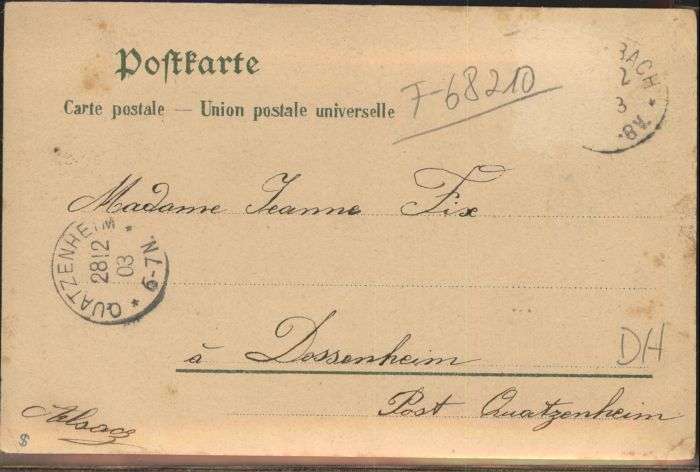 Postkarte
Carte postale — Union postale universelle
F-68210
BACH *
2
3
Madame Jeanne Fix
* QUATZENHEIM *
28 12
03
6-7N.
à Dossenheim
DH
Post Quatzenheim
Alsace